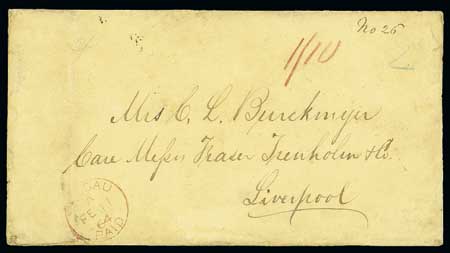 No 25
1/10
Mrs C. L. Burckmyer
Care Messrs Fraser Trenholm & Co.
Liverpool
SAU
A
FE 11
64
PAID